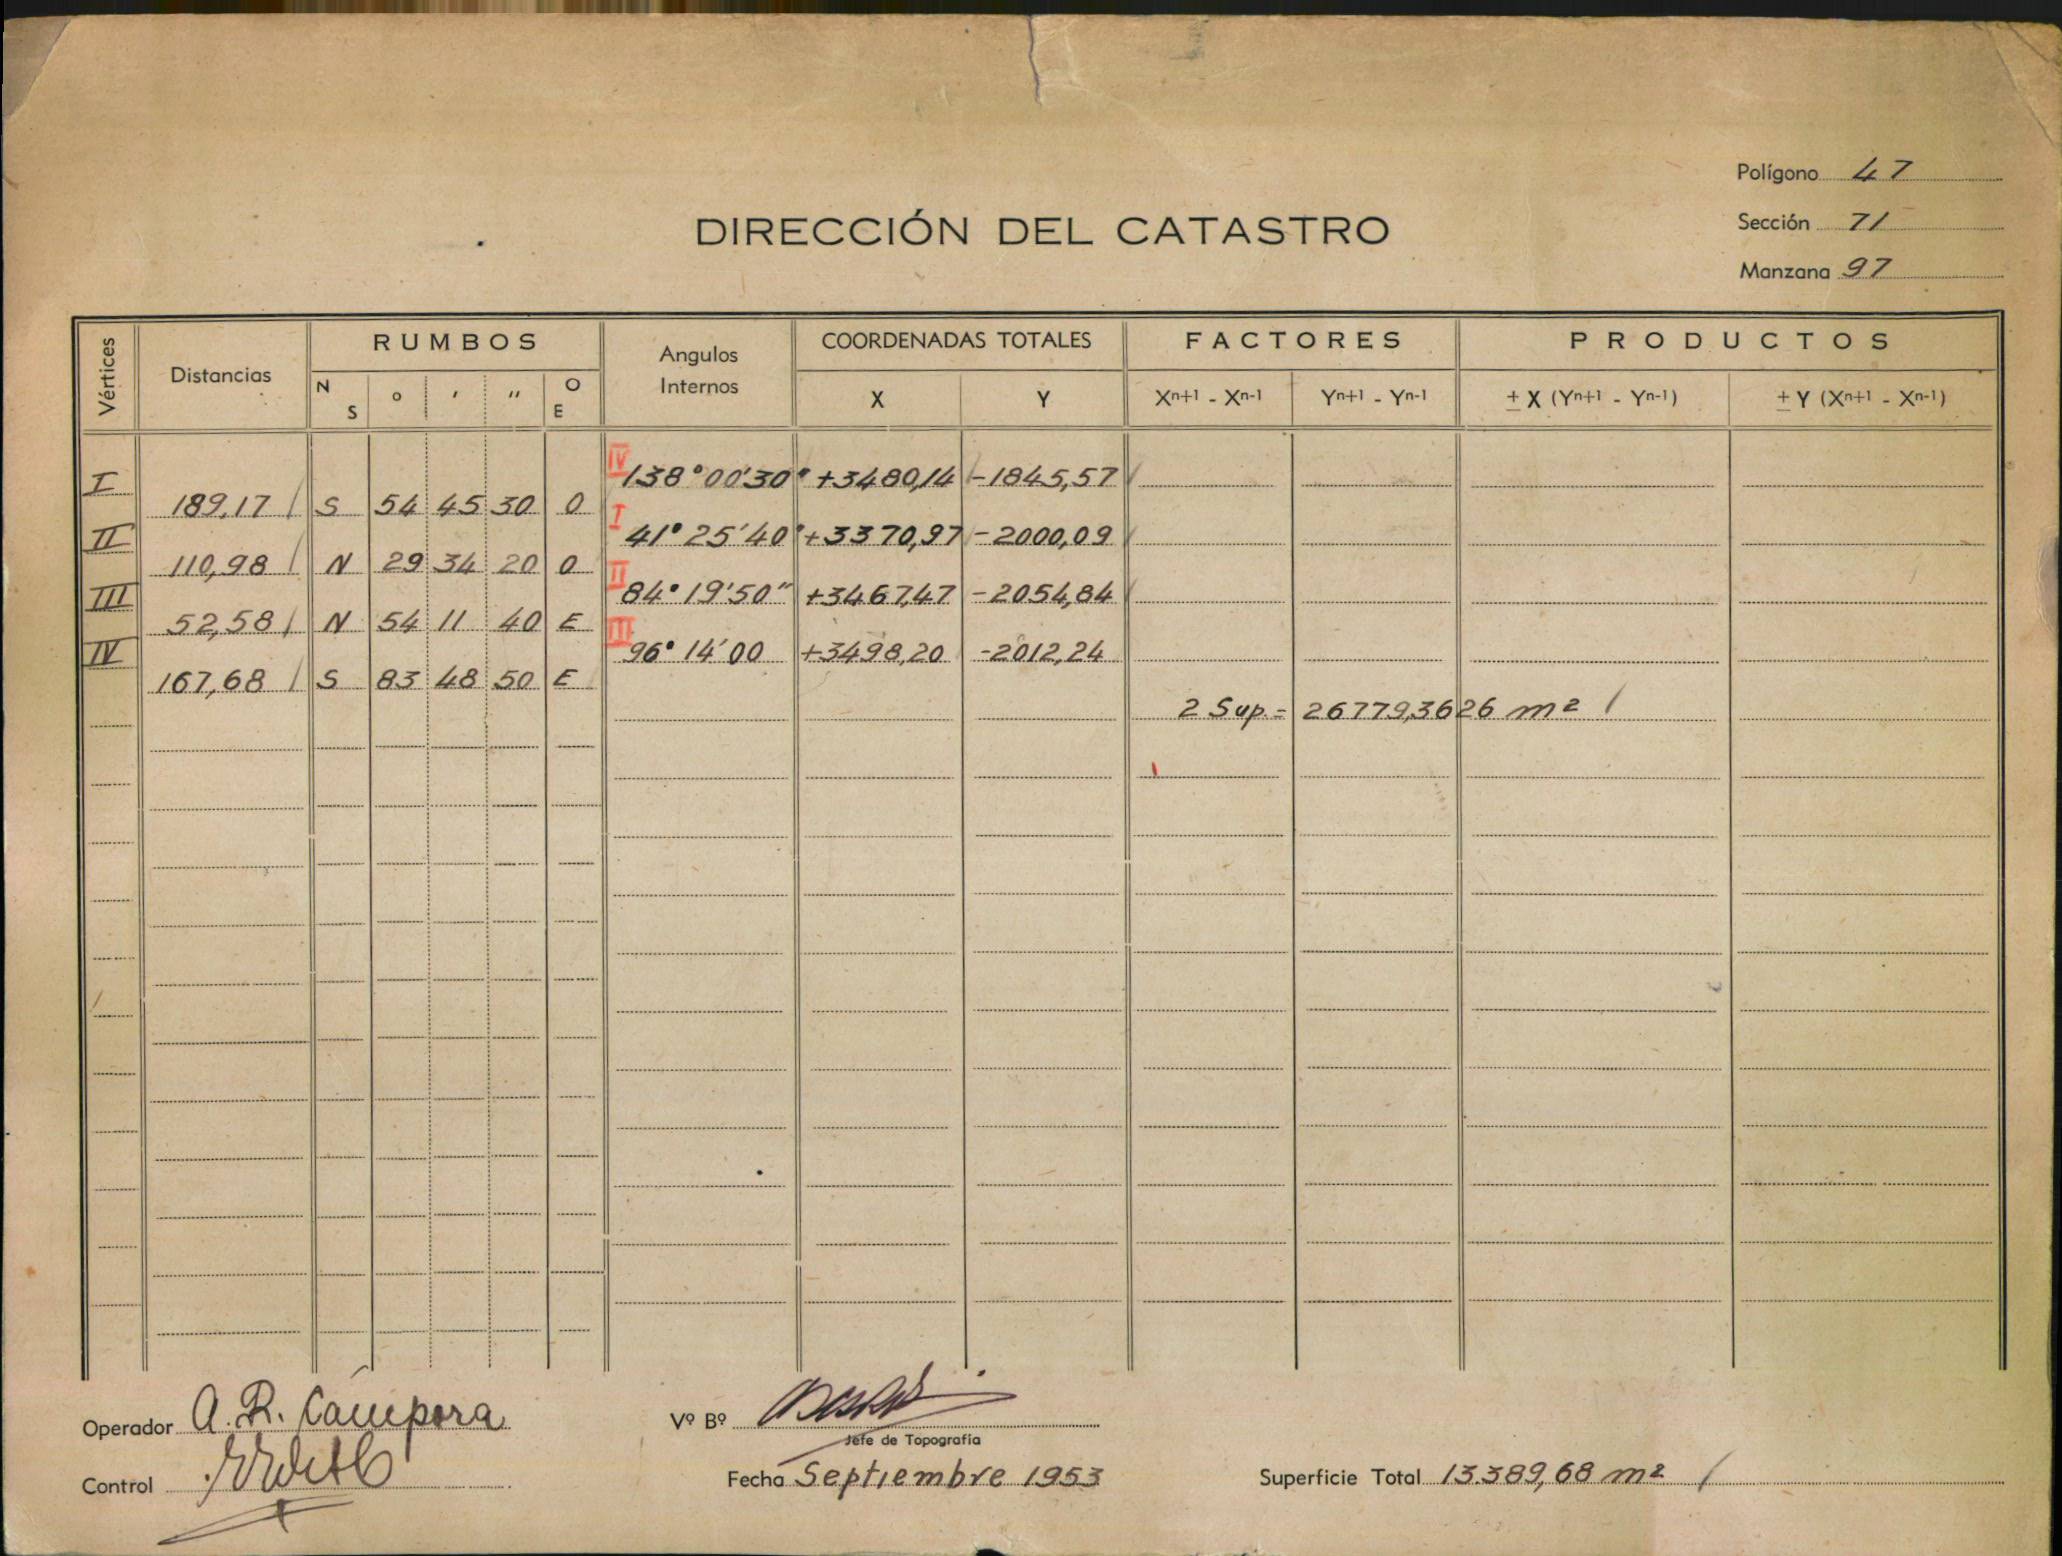 Polígono 47
DIRECCIÓN DEL CATASTRO
Sección 71
Manzana 97
Vértices Distancias RUMBOS Angulos Internos COORDENADAS TOTALES FACTORES PRODUCTOS
N S ° ' " O E X Y Xn+1 - Xn-1 Yn+1 - Yn-1 ± X (Yn+1 - Yn-1) ± Y (Xn+1 - Xn-1)
I IV 138° 00' 30" +3480,14 -1845,57
189,17 S 54 45 30 O
II I 41° 25' 40" +3370,97 -2000,09
110,98 N 29 34 20 O
III II 84° 19' 50" +3467,47 -2054,84
52,58 N 54 11 40 E
IV III 96° 14' 00 +3498,20 -2012,24
167,68 S 83 48 50 E
2 Sup. = 26779,3626 m2
Operador A. R. Cámpora Vº Bº
Jefe de Topografía
Control Fecha Septiembre 1953 Superficie Total 13.389,68 m2